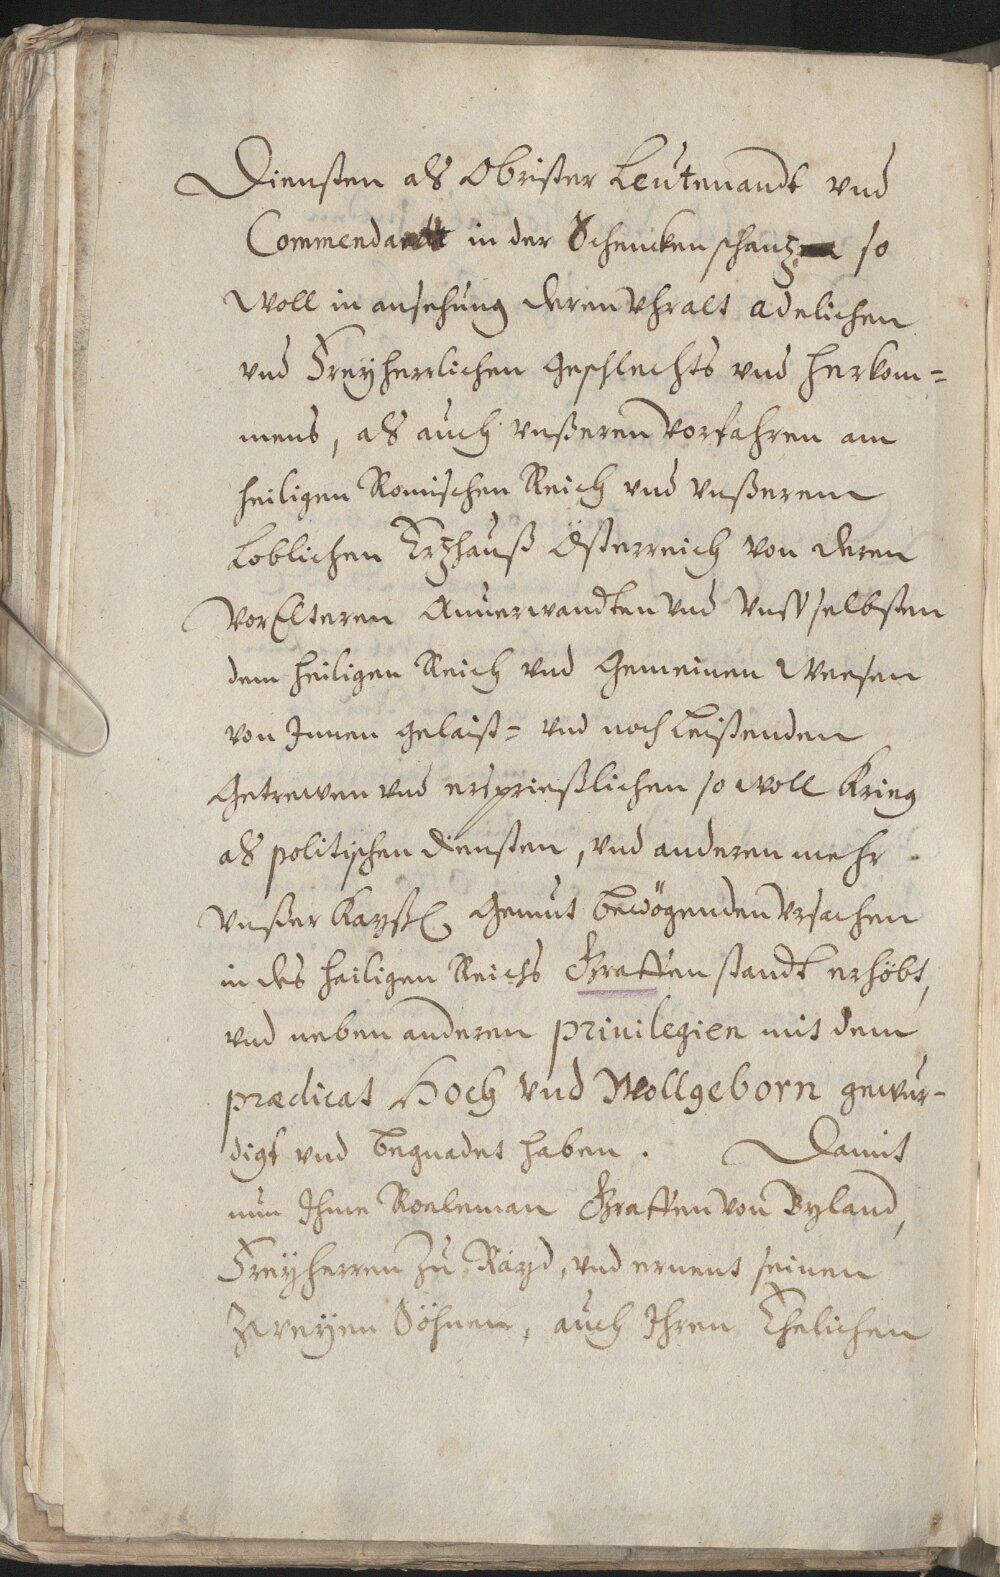 Diensten als Obrister Leutenandt vnd
Commendandt in der Schencken schantz so
woll in ansehung deren vhralt adelichen
vnd Freÿherrlichen Geschlechts vnd herkom=
mens, als auch vnßeren Vorfahren am
heiligen Romischen Reich vnd vnßerem
Loblichen Ertzhauß Österreich von deren
VorElteren Anuerwandten vnd vnss selbsten
dem heiligen Reich vnd Gemeinen Weesen
von Innen gelaist= vnd noch Leistenden
Getrewen vnd ersprießlichen so woll Krieg
als politischen diensten, vnd anderen mehr
vnßer Kayßl Gemut bewögenden vrsachen
in des hailigen Reichs Graffen standt erhöbt,
vnd neben anderen priuilegien mit dem
prædicat Hoch vnd Wollgeborn gewür-
digt vnd begnadet haben. Damit
nun Ihme Roeleman Graffen von Byland,
Freÿherren Zu Rayd, vnd ernent seinen
Zweÿen Söhnen, auch Ihren Ehelichen